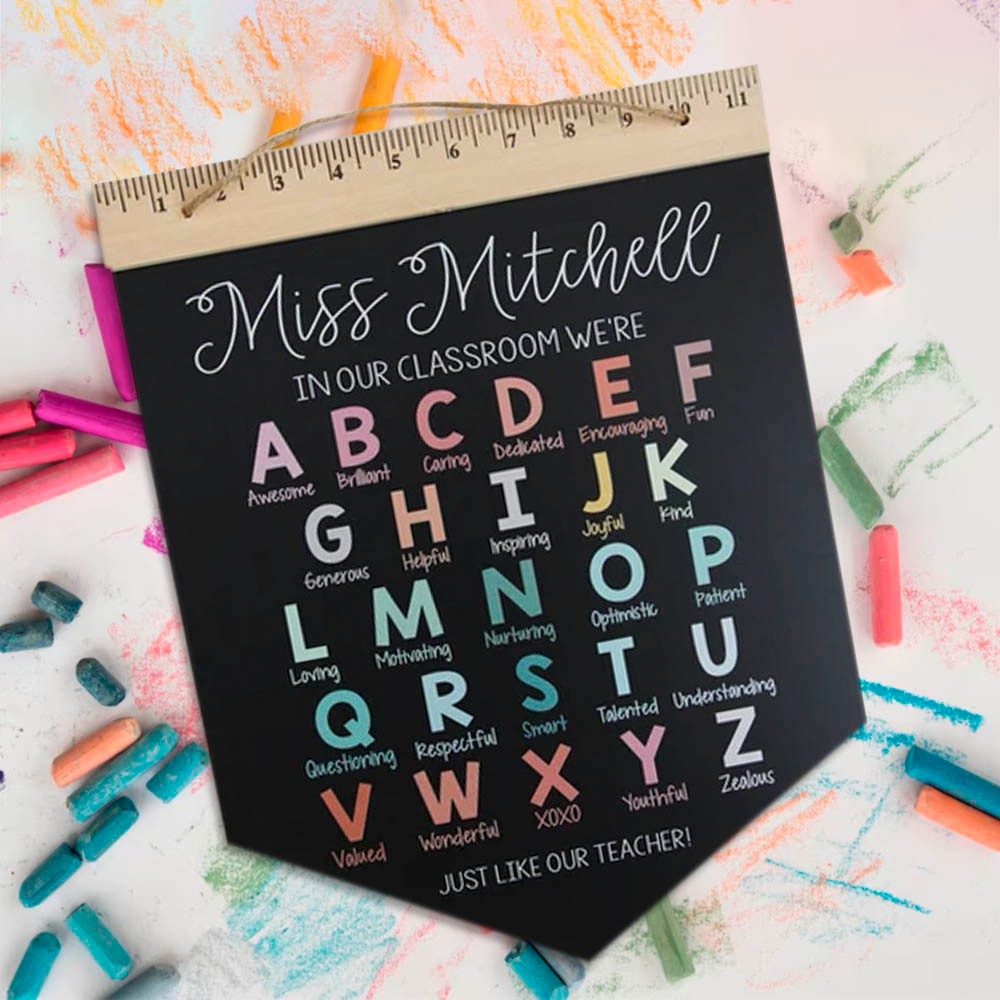 1 2 3 4 5 6 7 8 9 10 11
Miss Mitchell
IN OUR CLASSROOM WE'RE
A B C D E F
Awesome Brilliant Caring Dedicated Encouraging Fun
G H I J K
Generous Helpful Inspiring Joyful Kind
L M N O P
Loving Motivating Nurturing Optimistic Patient
Q R S T U
Questioning Respectful Smart Talented Understanding
V W X Y Z
Valued Wonderful XOXO Youthful Zealous
JUST LIKE OUR TEACHER!